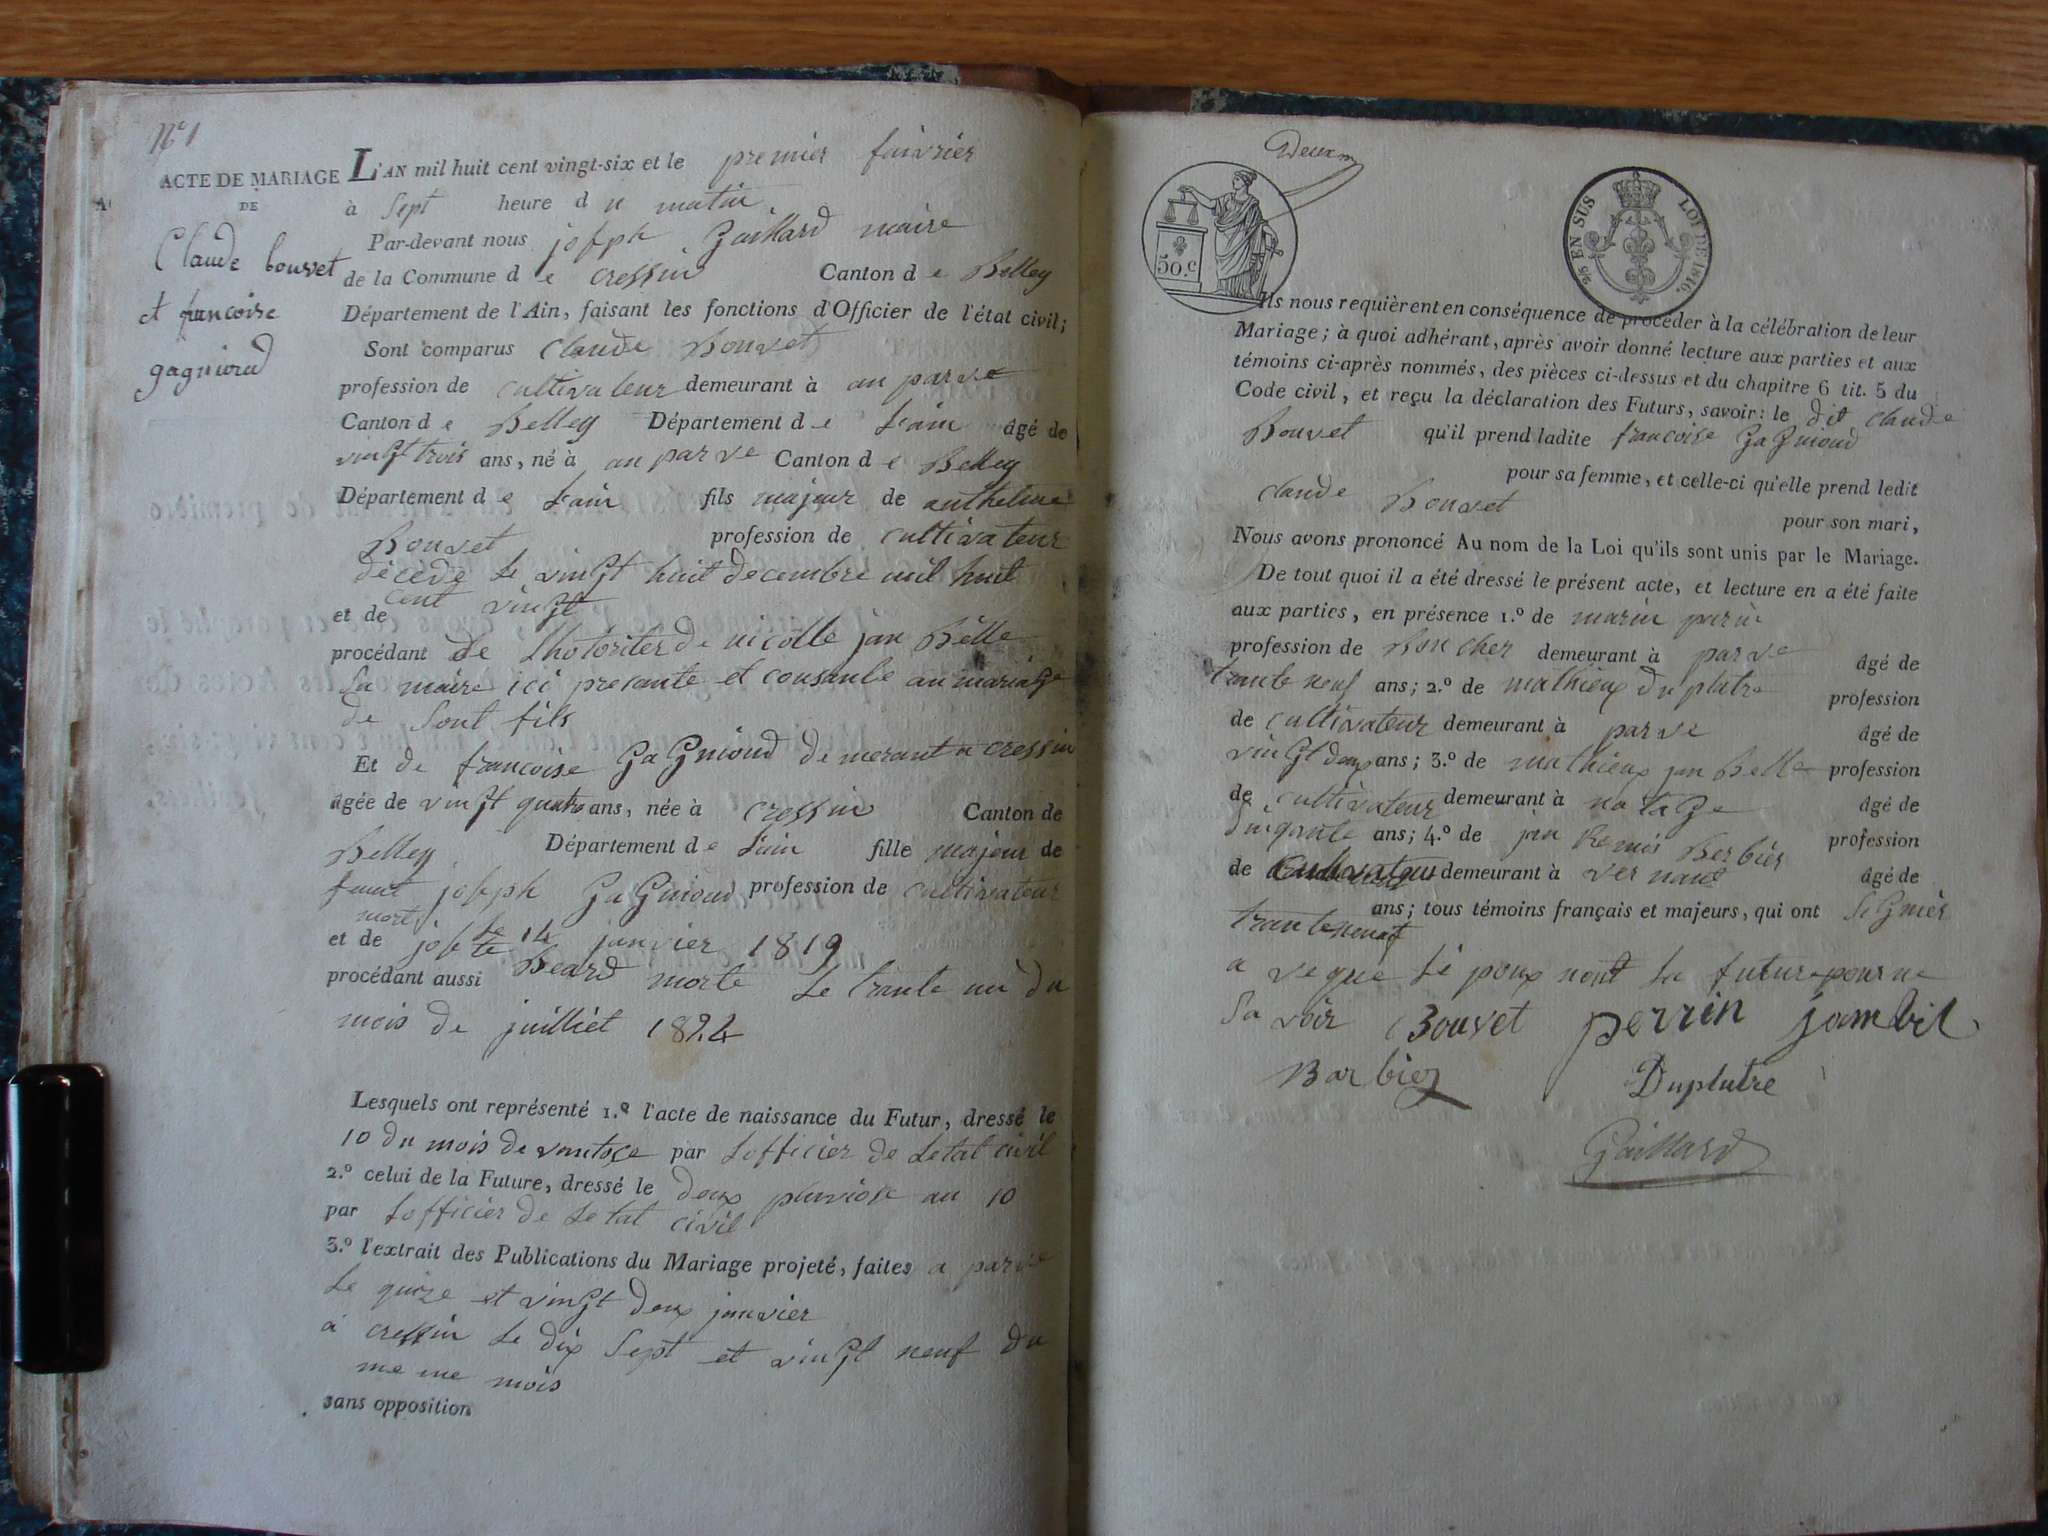 N° 1
ACTE DE MARIAGE
DE
Claude bouvet
et francoise
gagnioud
L'AN mil huit cent vingt-six et le premier faivrier
à Sept heure du matin
Par-devant nous joseph Gaillard maire
de la Commune de cressin Canton de Belley
Département de l'Ain, faisant les fonctions d'Officier de l'état civil;
Sont comparus Claude Bouvet
profession de cultivateur demeurant à au parve
Canton de Belley Département de Lain âgé de
vingt trois ans, né à au parve Canton de Belley
Département de Lain fils majeur de anthelme
Bouvet profession de cultivateur
décédé le vingt huit decembre mil huit
cent vingt
et de
procédant de Lhotoriter de nicolle jan Belle
Sa maire ici presante et consante au mariage
de Sont fils
Et de francoise GaGnioud demerant a cressin
âgée de vingt quatre ans, née à cressin Canton de
Belley Département de Lain fille majeur de
funt joseph GaGnioud profession de cultivateur
mort le 14 janvier 1819
et de josette Beard morte Le trante un du
procédant aussi
mois de juilliet 1824
Lesquels ont représenté 1.º l'acte de naissance du Futur, dressé le
10 du mois de vantose par Lofficier de Letat civil
2.º celui de la Future, dressé le deux pluviose an 10
par Lofficier de Letat civil
3.º l'extrait des Publications du Mariage projeté, faites a parve
Le quize et vingt deux janvier
a cressin Le dix Sept et vingt neuf du
me me mois
sans opposition
Deuxm
50.c
25 EN SUS LOI DE 1816.
Ils nous requièrent en conséquence de procéder à la célébration de leur
Mariage; à quoi adhérant, après avoir donné lecture aux parties et aux
témoins ci-après nommés, des pièces ci-dessus et du chapitre 6 tit. 5 du
Code civil, et reçu la déclaration des Futurs, savoir: le dit claude
Bouvet qu'il prend ladite francoise GaGnioud
pour sa femme, et celle-ci qu'elle prend ledit
claude Bouvet
pour son mari,
Nous avons prononcé Au nom de la Loi qu'ils sont unis par le Mariage.
De tout quoi il a été dressé le présent acte, et lecture en a été faite
aux parties, en présence 1.º de marin perin
profession de Boucher demeurant à parve âgé de
trante neuf ans; 2.º de mathieux du platre profession
de cultivateur demeurant à parve âgé de
vingt deux ans; 3.º de mathieux jan Belle profession
de cultivateur demeurant à na tage âgé de
Sinqante ans; 4.º de jan Remis Berbier profession
de cultivateur demeurant à ver nant âgé de
trante neuf ans; tous témoins français et majeurs, qui ont SiGnièr
a veque Lé poux nont La future pour ne
Sa voir Bouvet perrin jambil
Barbier Duplatre
Gaillard